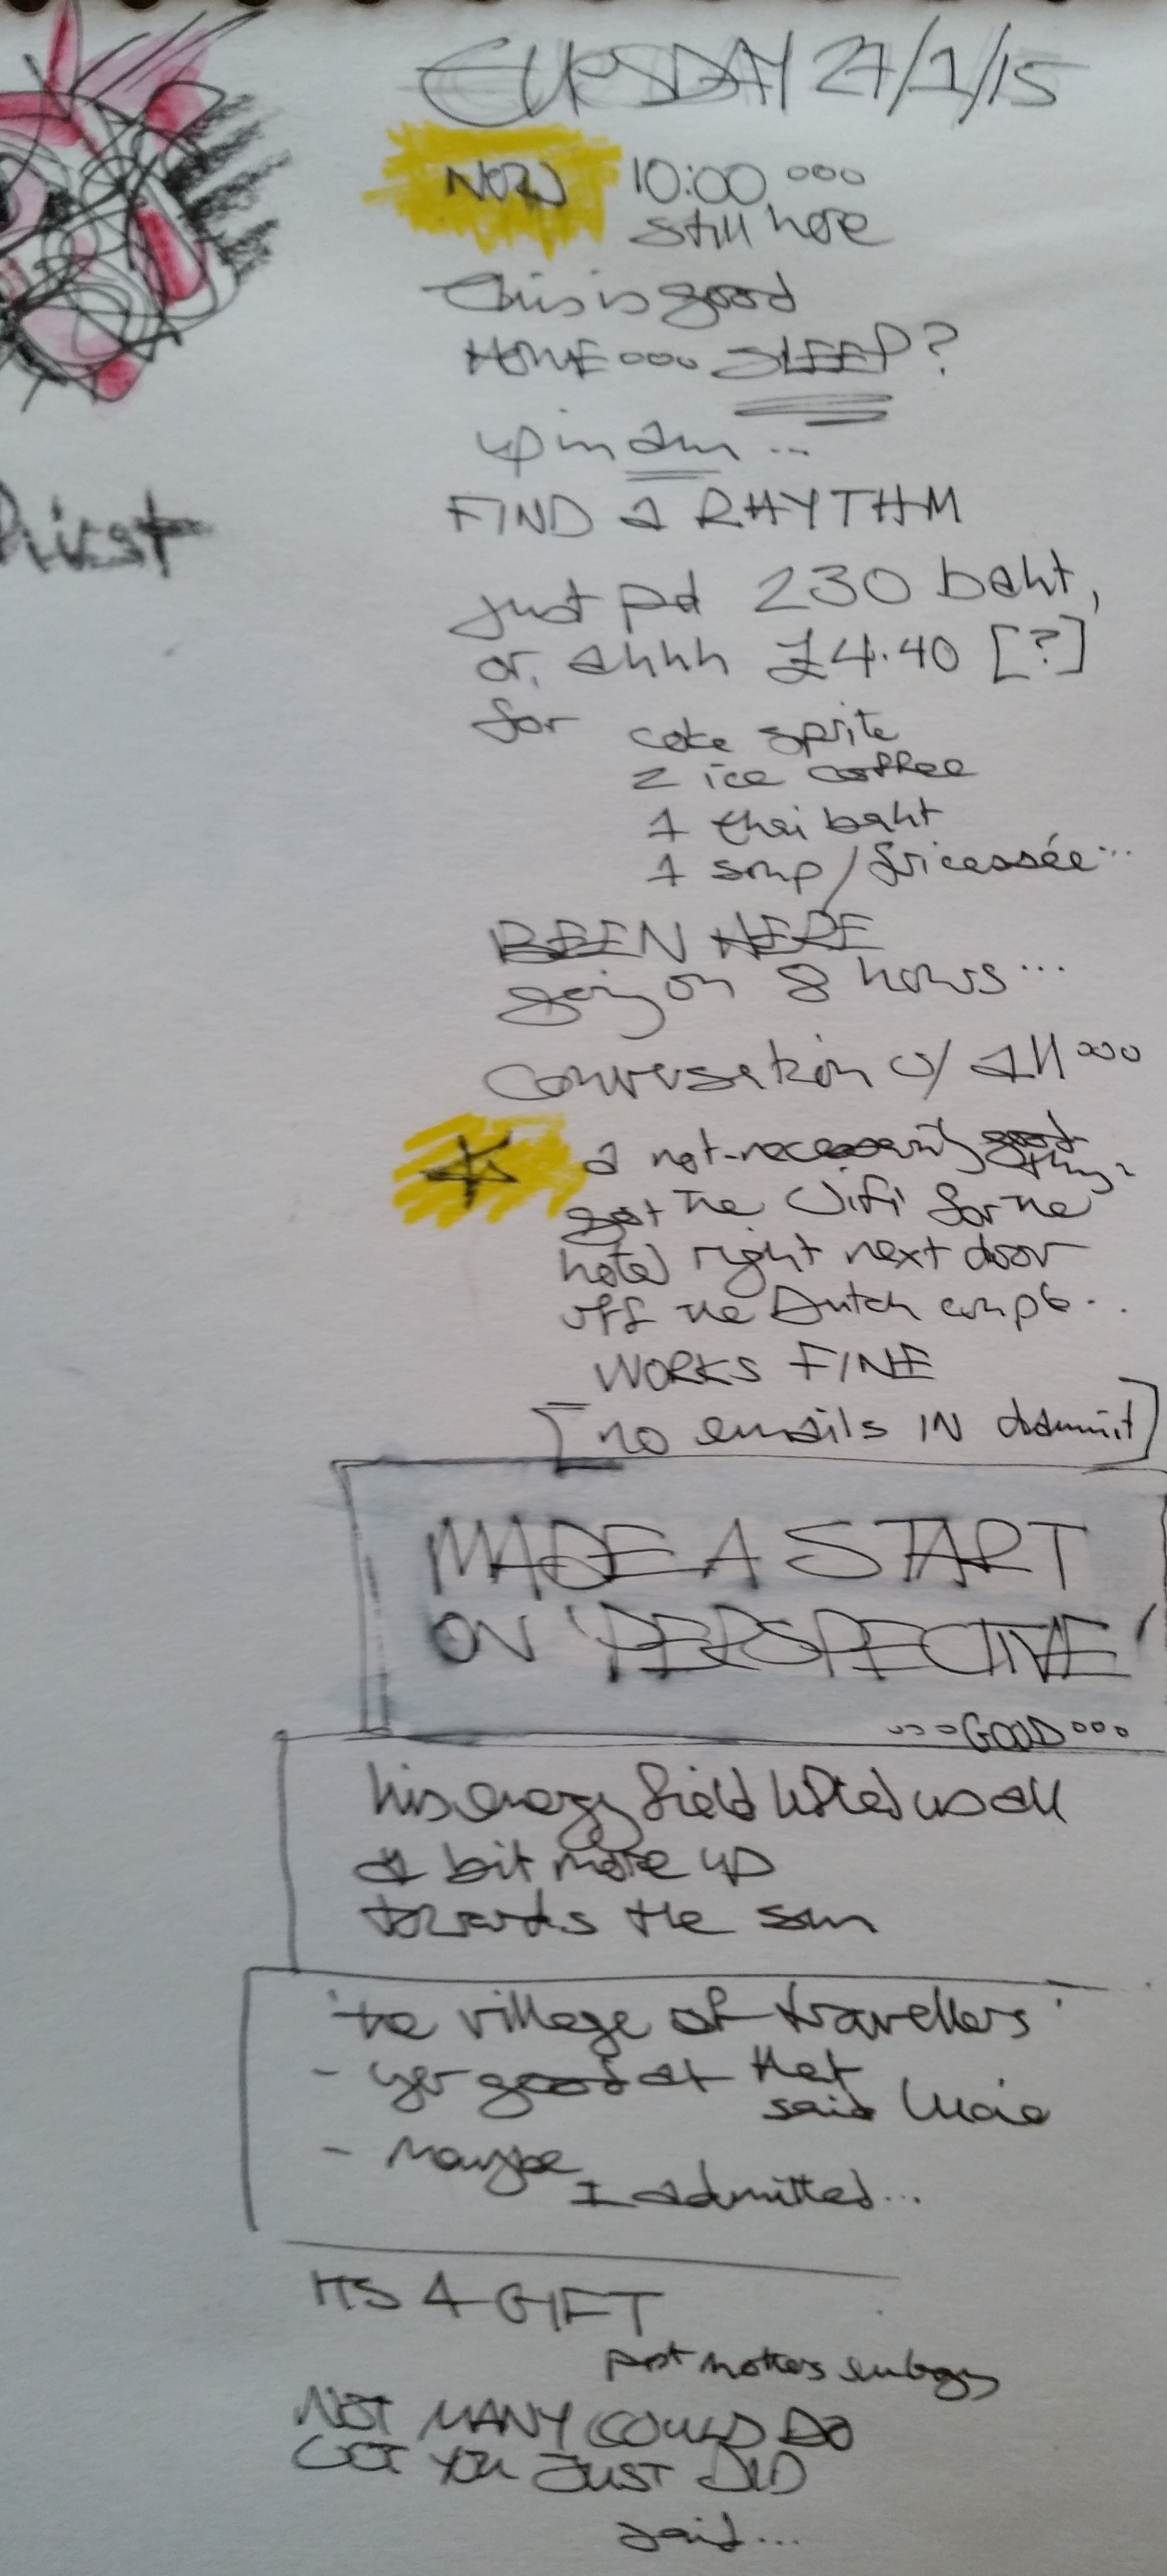 TUESDAY 27/1/15
NOW 10:00 ooo
still here
this is good
HOME ooo SLEEP?
up in am ...
FIND a RHYTHM
Priest
just pd 230 baht,
or, ahhh £4.40 [?]
for coke sprite
2 ice coffee
1 thai baht
1 soup / fricassée ...
BEEN HERE
going on 8 hours ...
conversation w/ All ooo
a not-necessarily good
thing
got the Wifi for the
hotel right next door
off the Dutch couple ..
WORKS FINE
[no emails IN dammit]
MADE A START
ON 'PERSPECTIVE'
ooo GOOD ooo
his energy field lifted us all
a bit more up
towards the sun
'the village of travellers'
- yer good at that
said
- Maybe
I admitted...
ITS A GIFT
post mothers eulogy
NOT MANY COULD DO
YOU JUST DID
said...